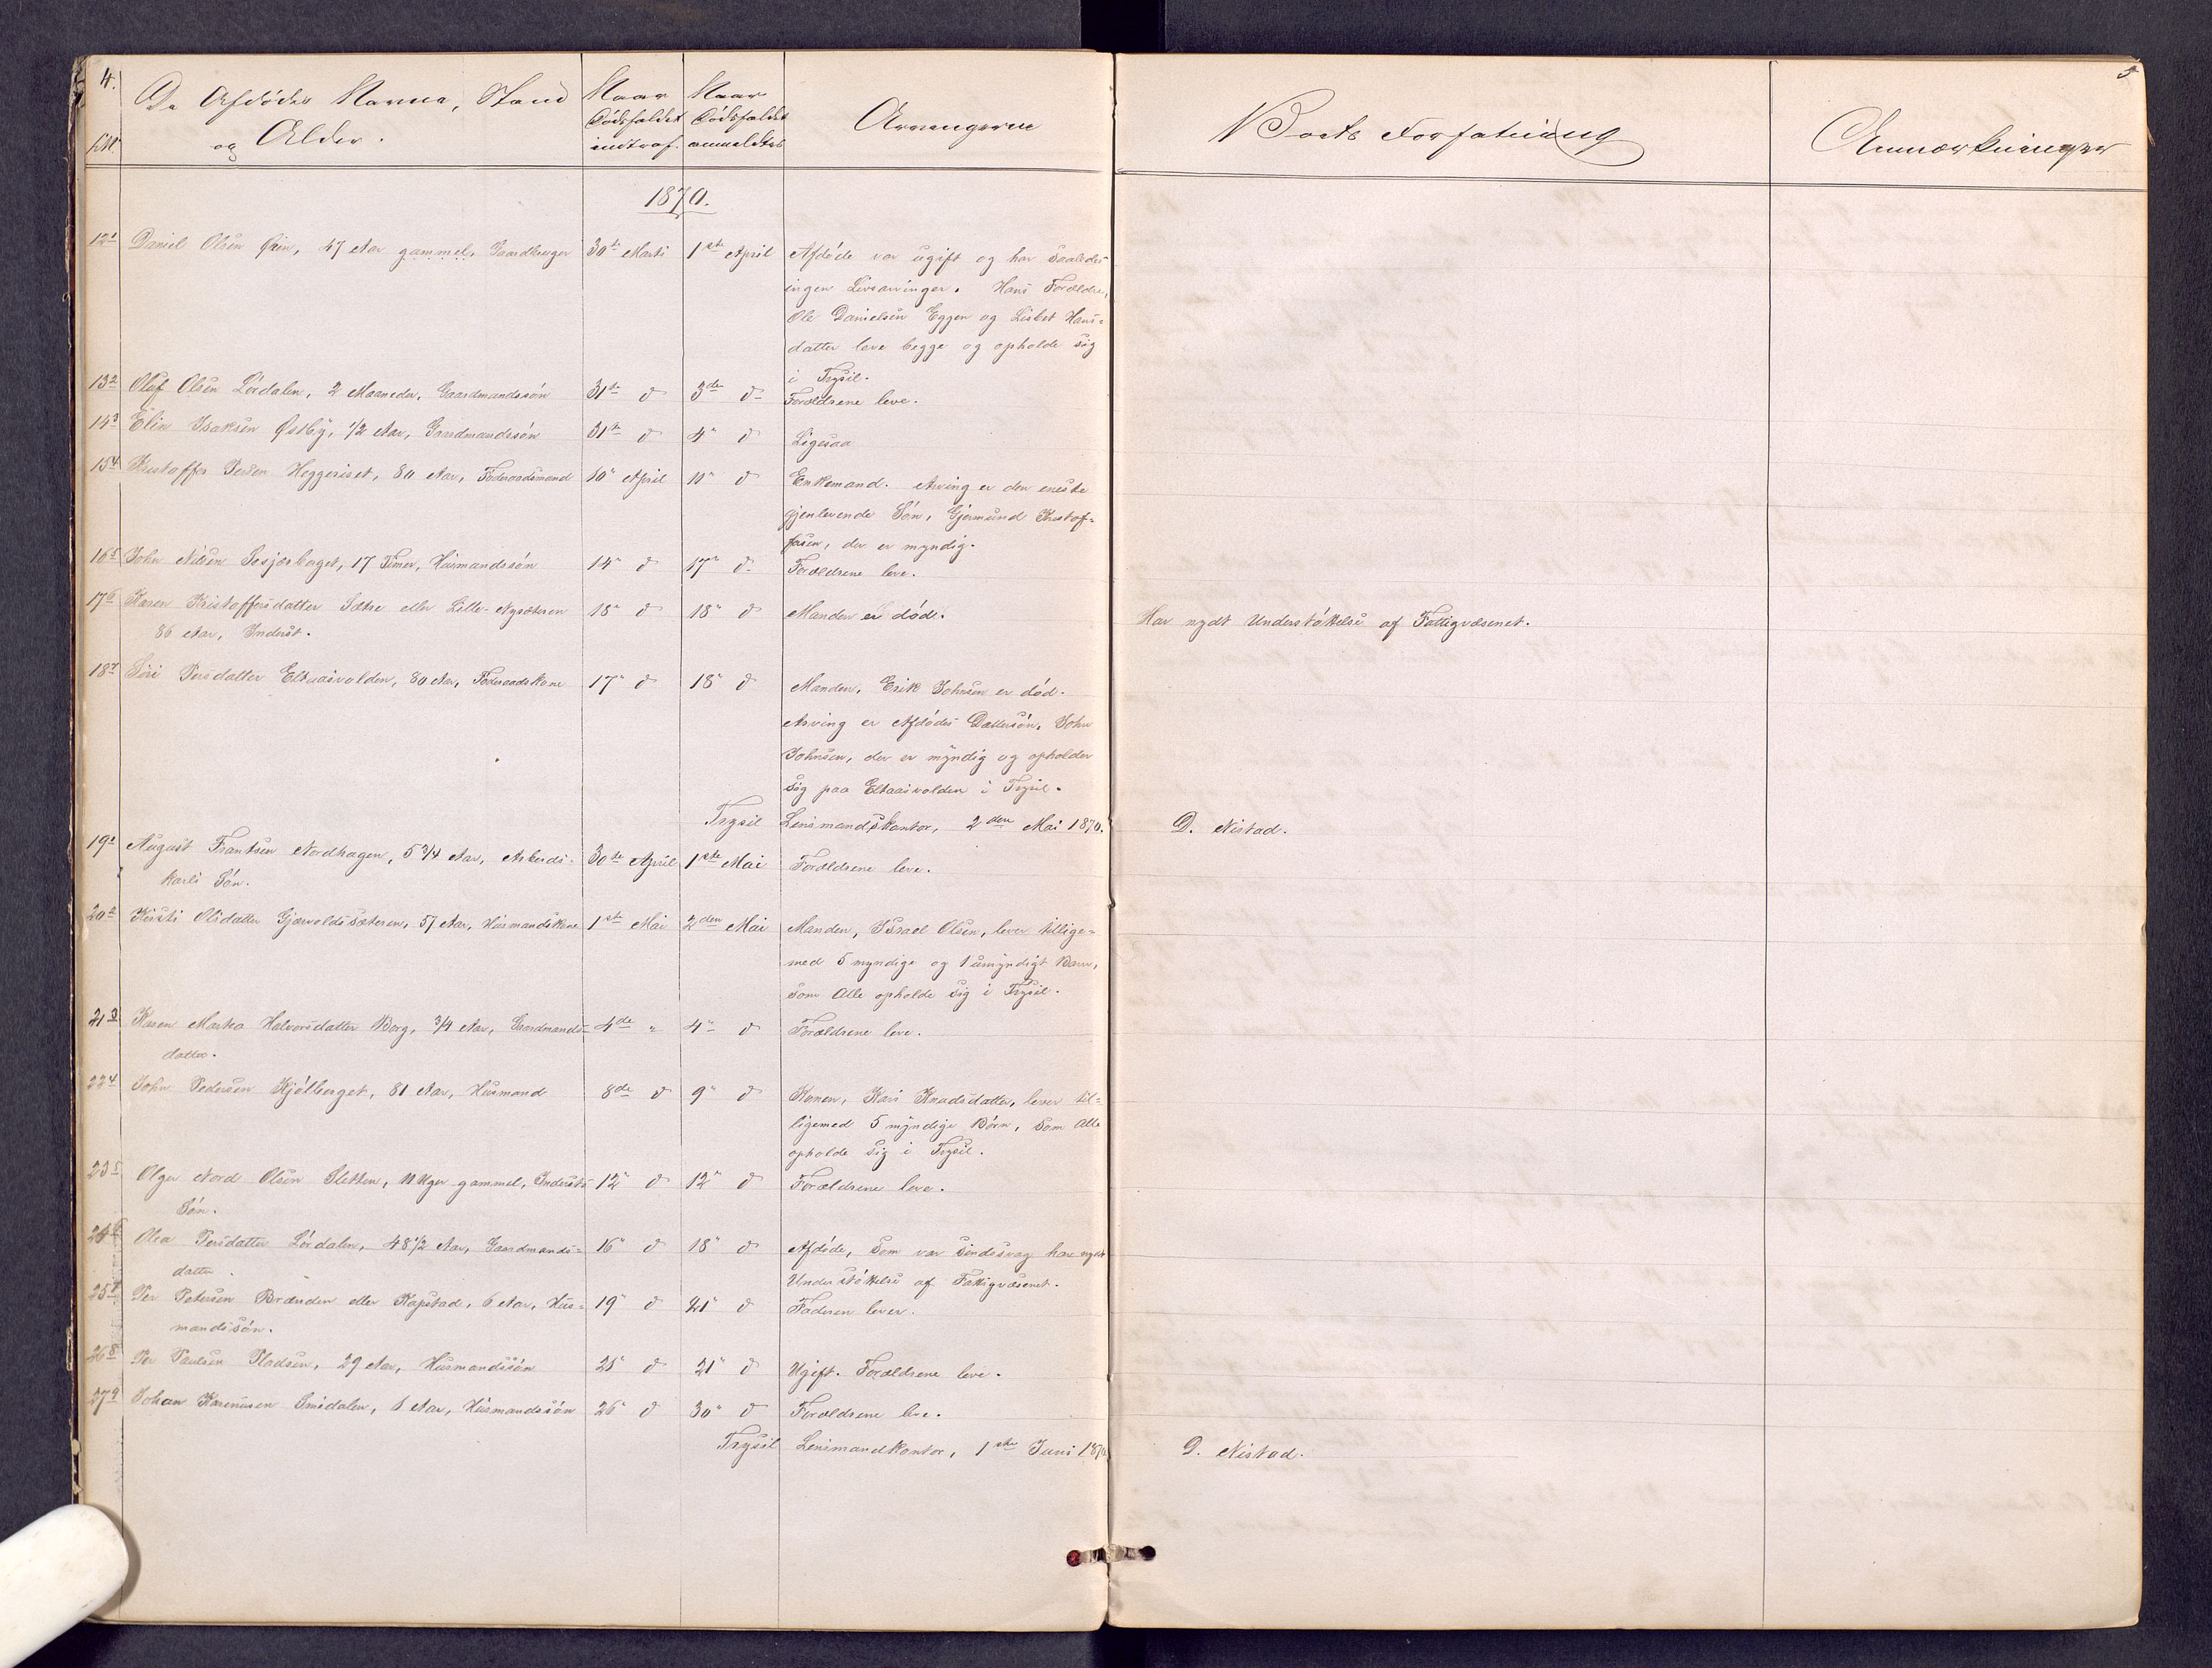 4.
5
De Afdødes Navne, Stand
og Alder.
Naar
Dødsfaldet
indtraf.
Naar
Dødsfaldet
anmeldtes
Arvingerne
Boets Forfatning
Anmærkninger
1870.
12 1 Daniel Olsen 47 Aar gammel, Gaardbruger 30te Marts 1ste April Afdøde var ugift og har saaledes
ingen Livsarvinger. Hans Forældre,
Ole Danielsen Eggen og Lisbet Hans=
datter leve begge og opholde sig
i Trysil.
13 2 Oluf Olsen Lørdalen, 2 Maaneder, Gaardmandssøn 31te d 3de d Forældrene leve.
14 3 Elin Isaksen Østby, 1/2 Aar, Gaardmandssøn 31te d 4" d Ligesaa
15 4 Kristoffer Persen Heggeriset, 80 Aar, Føderaadsmand 10" April 10" d Enkemand. Arving er den eneste
gjenlevende Søn, Gjermund Kristof=
fersen, der er myndig.
16 5 John Nilsen 17 Timer, Husmandssøn 14" d 17" d Forældrene leve.
17 6 Karen Kristoffersdatter Sætre eller Lille-Nysæteren 18" d 18" d Manden er død. Har nydt Understøttelse af Fattigvæsenet.
86 Aar, Inderst.
18 7 Siri Persdatter Eltaasvolden, 80 Aar, Føderaadskone 17" d 18" d Manden, Erik Johnsen er død.
Arving er Afdødes Dattersøn, John
Johnsen, der er myndig og opholder
sig paa Eltaasvolden i Trysil.
Trysil Lensmandskontor, 2den Mai 1870. D. Nistad.
19 1 August Frantsen Nordhagen, 5 3/4 Aar, Arbeids= 30te April 1ste Mai Forældrene leve.
karls Søn.
20 2 Kirsti Olsdatter Gjærvoldssæteren, 57 Aar, Husmandskone 1ste Mai 2den Mai Manden, Israel Olsen, lever tillige=
med 5 myndige og 1 umyndigt Barn,
som Alle opholde sig i Trysil.
21 3 Karen Martea Halvorsdatter Borg, 3/4 Aar, Gaardmands= 4de " 4" d Forældrene leve.
datter.
22 4 John Pedersen Kjølberget, 81 Aar, Husmand 8de d 9" d Konen, Kari Knudsdatter, lever til=
ligemed 5 myndige Børn, som Alle
opholde sig i Trysil.
23 5 Olger Nord Olsen Sletten, 11 Uger gammel, Inderst= 12" d 12" d Forældrene leve.
Søn.
24 6 Olea Persdatter Lørdalen, 48 1/2 Aar, Gaardmands= 16" d 18" d Afdøde, som var Sindssvag har nydt
datter. Understøttelse af Fattigvæsenet.
25 7 Per Petersen Brænden eller Kapstad, 6 Aar, Hus= 19" d 21" d Faderen lever.
mandssøn.
26 8 Per Paulsen Pladsen, 29 Aar, Husmandssøn d 21" d Ugift. Forældrene leve.
27 9 Johan Karenusen 6 Aar, Husmandssøn 26" d 30" d Forældrene leve.
Trysil Lensmandkontor, 1ste Juni 1870 D. Nistad.